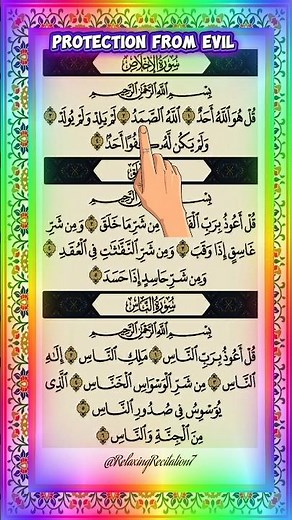 PROTECTION FROM EVIL
سُورَةُ الإِخْلَاصِ
بِسْمِ اللَّهِ الرَّحْمَٰنِ الرَّحِيمِ
قُلْ هُوَ اللَّهُ أَحَدٌ ١ اللَّهُ الصَّمَدُ ٢ لَمْ يَلِدْ وَلَمْ يُولَدْ ٣
وَلَمْ يَكُن لَّهُ أَحَدٌ ٤
بِسْمِ اللَّهِ الرَّحْمَٰنِ الرَّحِيمِ
قُلْ أَعُوذُ بِرَبِّ مِن شَرِّ مَا خَلَقَ ٢ وَمِن شَرِّ
غَاسِقٍ إِذَا وَقَبَ ٣ وَمِن شَرِّ النَّفَّٰثَٰتِ فِي الْعُقَدِ ٤
وَمِن شَرِّ حَاسِدٍ إِذَا حَسَدَ ٥
سُورَةُ النَّاسِ
بِسْمِ اللَّهِ الرَّحْمَٰنِ الرَّحِيمِ
قُلْ أَعُوذُ بِرَبِّ النَّاسِ ١ مَلِكِ النَّاسِ ٢ إِلَٰهِ
النَّاسِ ٣ مِن شَرِّ الْوَسْوَاسِ الْخَنَّاسِ ٤ الَّذِي
يُوَسْوِسُ فِي صُدُورِ النَّاسِ ٥
مِنَ الْجِنَّةِ وَالنَّاسِ ٦
@RelaxingRecitation7